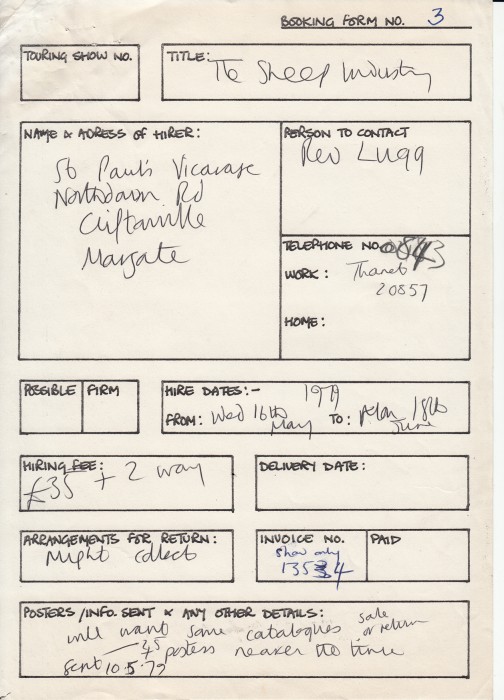 BOOKING FORM NO. 3
TOURING SHOW NO.
TITLE:
The Sheep Industry
NAME & ADRESS OF HIRER:
St Paul's Vicarage
Northdown Rd
Cliftonville
Margate
PERSON TO CONTACT
Rev Lugg
TELEPHONE NO. 0843
WORK: Thanet
20857
HOME:
POSSIBLE FIRM
HIRE DATES:- 1979
FROM: Wed 16th May TO: Mon 18th June
HIRING FEE:
£35 + 2 way
DELIVERY DATE:
ARRANGEMENTS FOR RETURN:
Might collect
INVOICE NO.
show only
1354
PAID
POSTERS/INFO SENT & ANY OTHER DETAILS:
will want some catalogues sale or return
+ 45 posters nearer the time
sent 10.5.79